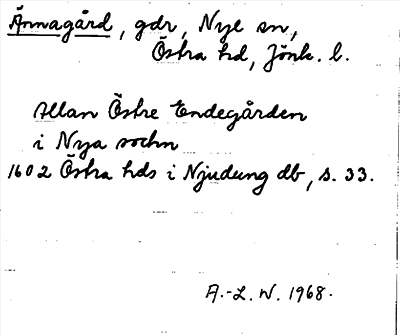 Ärmagård, gdr, Nye sn,
Östra hd, Jönk. l.
Allan Östre Endegården
i Nya sochn
1602 Östra hds i Njudung db, s. 33.
A.-L. W. 1968.